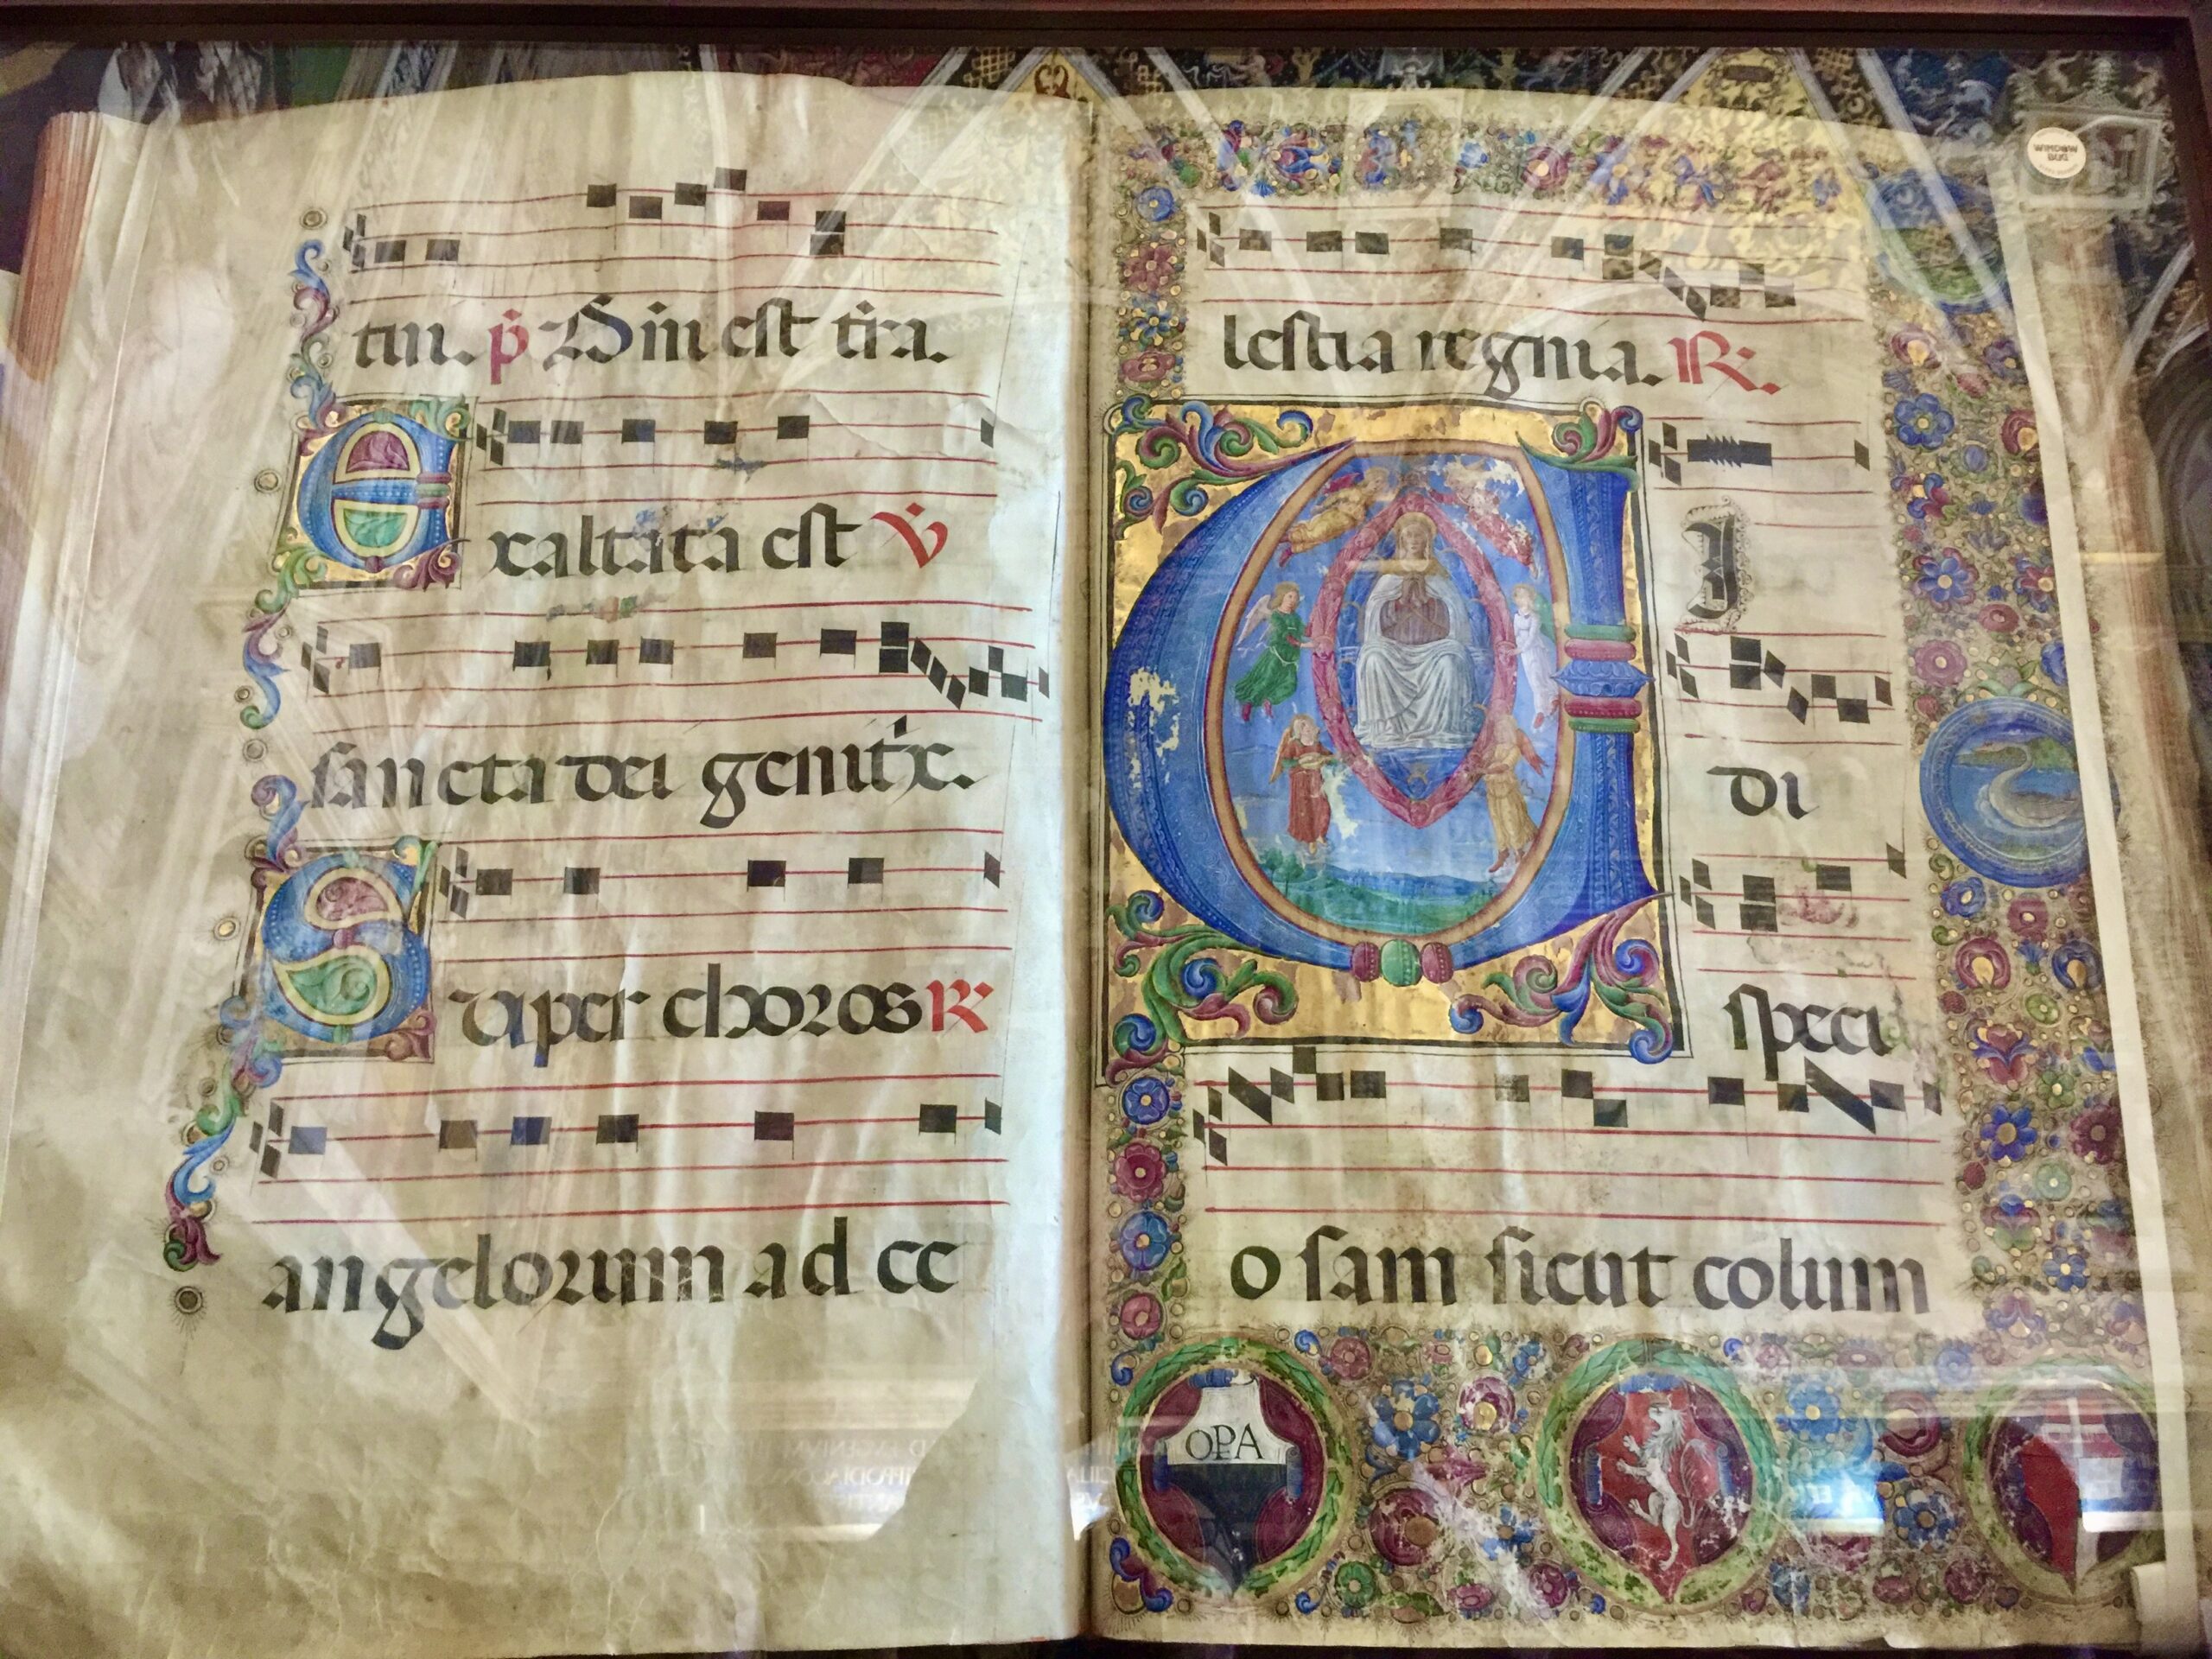 tm. p̄ Dn̄i est tr̄a.
Exaltata est V̇
sancta dei genitˢx.
Super choros R̄
angelorum ad ce
lestia regnia. R̄.
VI
di
speci
o sam sicut colum
OPA
WINDOW
BUG